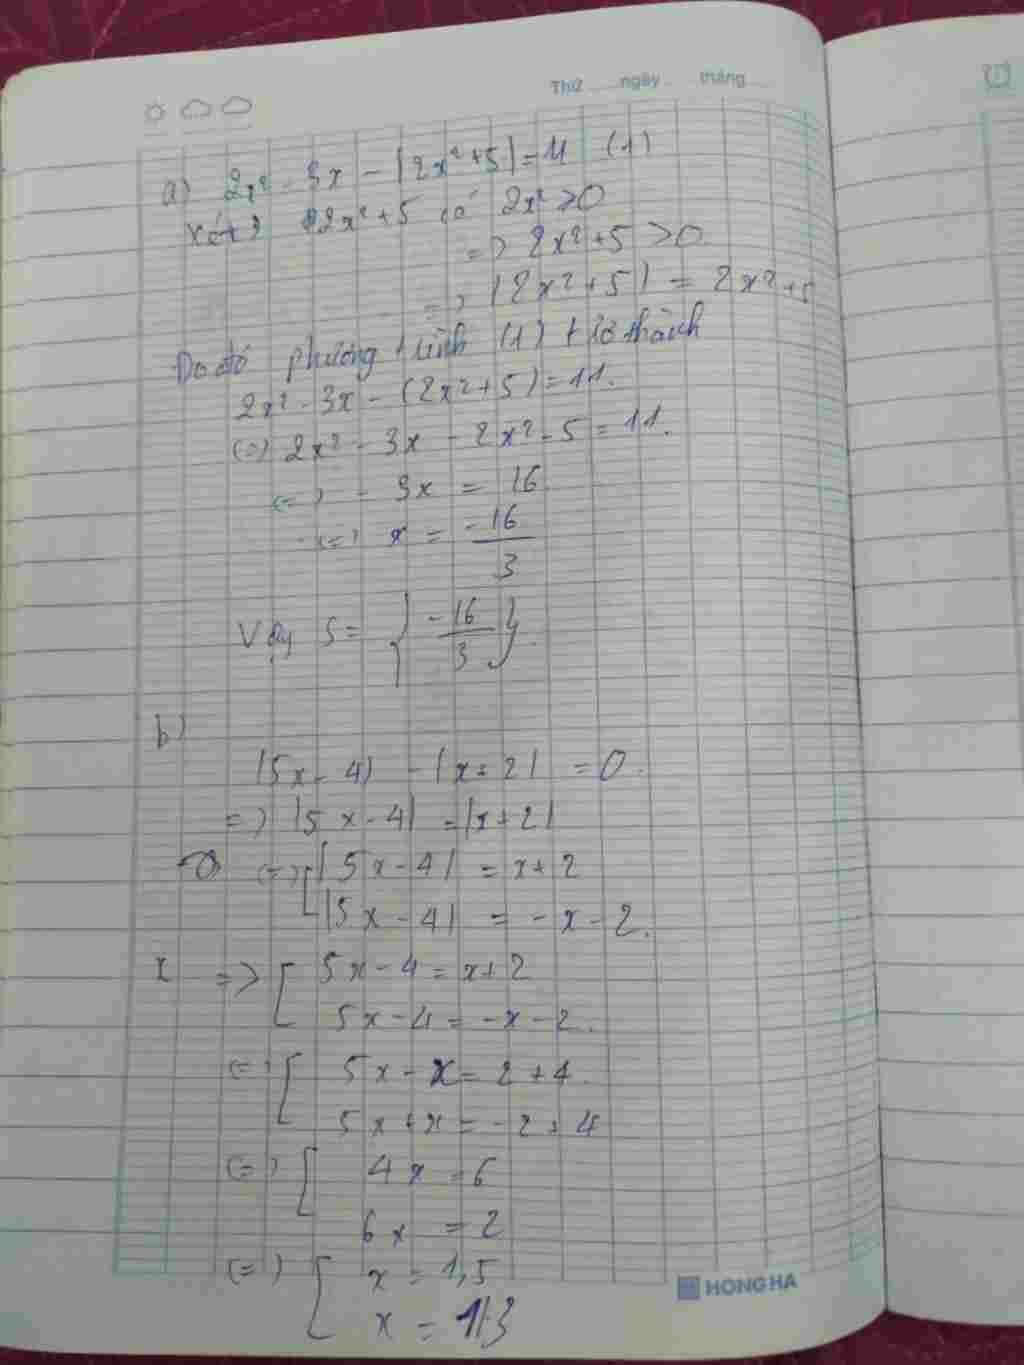 Thứ ..... ngày ..... tháng .....
a) 2x² - 3x - |2x² + 5| = 11 (1)
Xét 2x² + 5 có 2x² ≥ 0
=> 2x² + 5 > 0
=> |2x² + 5| = 2x² + 5
Do đó phương trình (1) trở thành
2x² - 3x - (2x² + 5) = 11.
(=) 2x² - 3x - 2x² - 5 = 11.
(=) - 3x = 16
(=) x = -16/3
Vậy S = { -16/3 }.
b)
|5x - 4| - |x + 2| = 0.
=> |5x - 4| = |x + 2|
(=) [ |5x - 4| = x + 2
|5x - 4| = - x - 2.
=> [ 5x - 4 = x + 2
5x - 4 = - x - 2.
(=) [ 5x - x = 2 + 4.
5x + x = - 2 + 4
(=) [ 4x = 6
6x = 2
(=) [ x = 1,5
x = 1/3
HONG HA